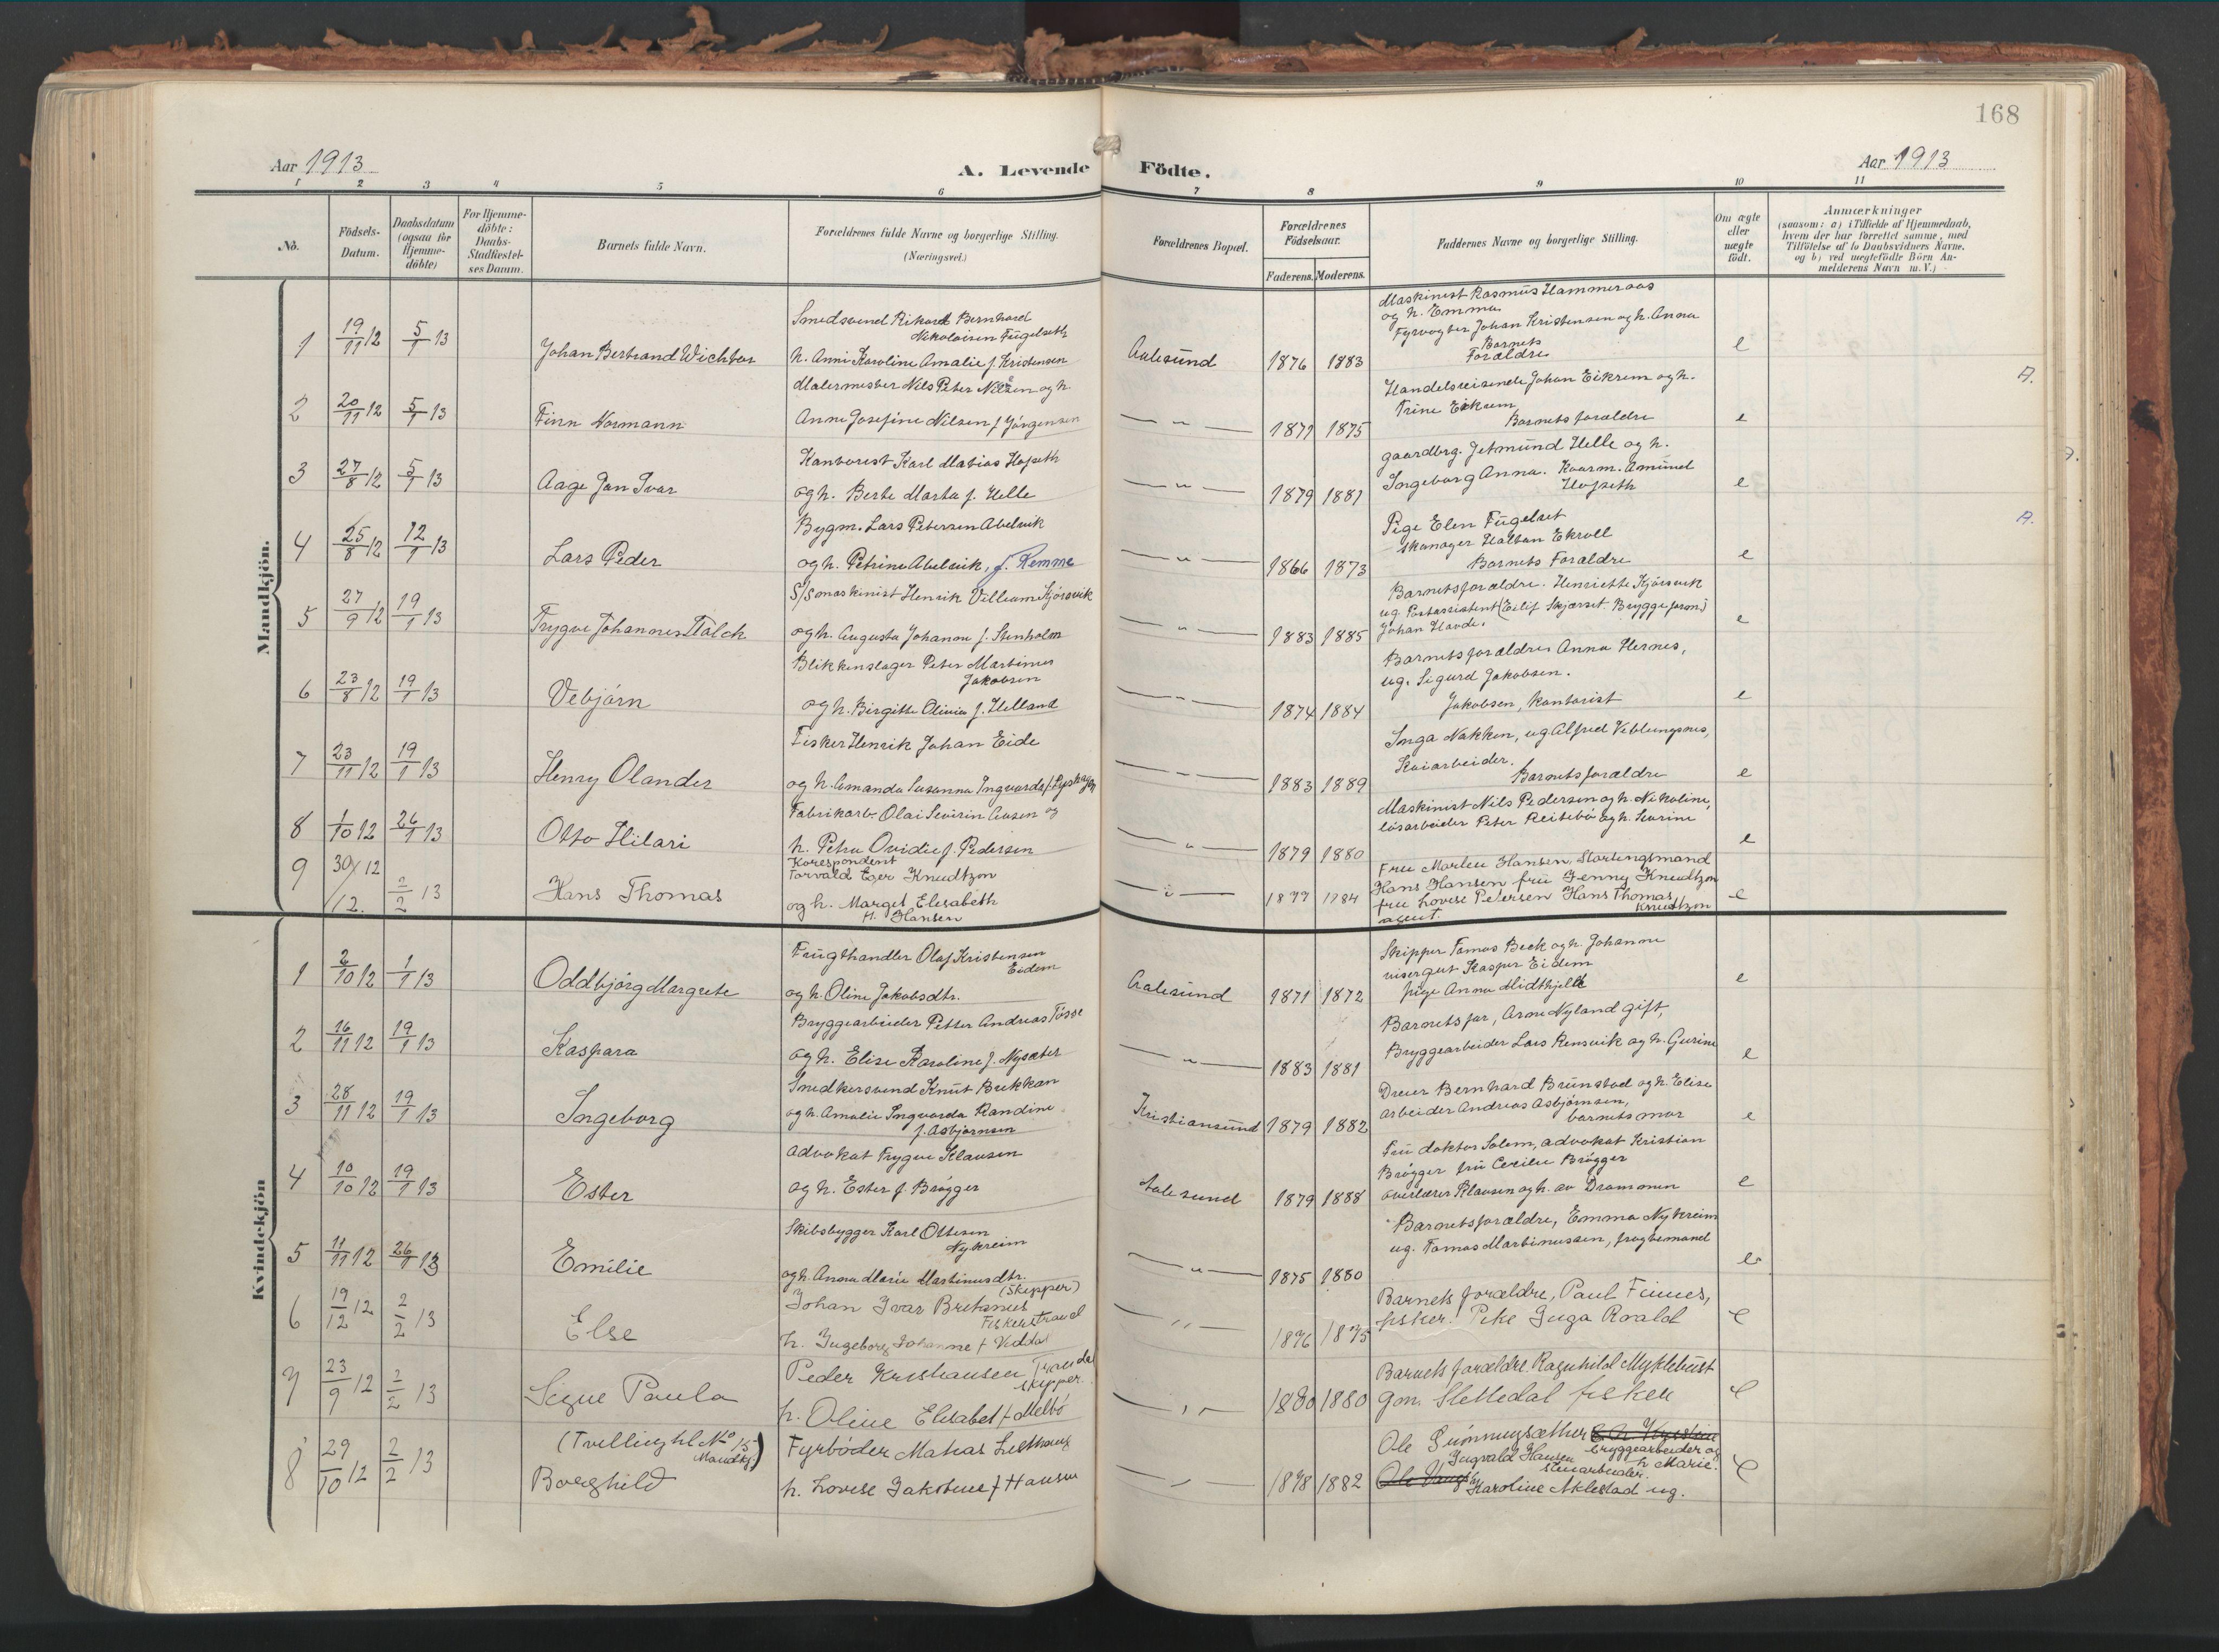 168
Aar 1913
A. Levende Födte.
Aar 1913
1 2 3 4 5 6 7 8 9 10 11
No.
Födsels-
Datum.
Daabsdatum
(ogsaa for
Hjemme-
döbte)
For Hjemme-
döbte:
Daabs-
Stadfæstel-
ses Datum.
Barnets fulde Navn.
Forældrenes fulde Navne og borgerlige Stilling.
(Næringsvei.)
Forældrenes Bopæl.
Forældrenes
Födselsaar.
Faderens. Moderens.
Faddernes Navne og borgerlige Stilling.
Om ægte
eller
uægte
födt.
Anmærkninger
(saasom: a) i Tilfælde af Hjemmedaab,
hvem der har forrettet samme, med
Tilföielse af to Daabsvidners Navne,
og b) ved uegtefödte Börn An-
melderens Navn m. V.)
Mandkjön.
1 19/11 12 5/1 13 Johan Bertrand Wichtor
Smedsvend Rikard Bernhard
Nikolaisen Fügelseth
h. Anni Karoline Amalie f. Kristensen
Aalesünd 1876 1883
Maskinist Rasmüs Hammeraas
og h. Emma
Fyrvogter Johan Kristensen og h. Anna
Barnets
Forældre
e
2 20/11 12 5/1 13 Finn Normann
Malermester Nils Peter Nilsen og h.
Anne Josefine Nilsen f. Jörgensen
— " — 1871 1875
Handelsreisende Johan Eikrem og h.
Trine Eikrem
Barnets forældre
e
A.
3 27/8 12 5/1 13 Aage Jan Ivar
Kontorist Karl Matias Hofseth
og h. Berte Marta f. Helle
— " — 1879 1881
gaardbrg. Jetmünd Helle og h.
Ingeborg Anna. Kaarm. Amünd
Hofseth
e
4 25/8 12 12/1 13 Lars Peder
Bygm. Lars Petersen Abelvik
og h. Petrine Abelvik, f. Remme
— " — 1866 1873
Pige Elen Fügelset
Skomager Halvan Ekroll
Barnets Forældre
e
A.
5 27/9 12 19/1 13 Trygve Johannes Falch
S/S maskinist Henrik Villiam Kjörsvik
og h. Augusta Johanna f. Stenholm
— " — 1883 1885
Barnets forældre. Henriette Kjörsvik
ug. Postassistent (Eilif Skjærset. Brygge form)
Johan Havde.
e
6 23/8 12 19/1 13 Vebjörn
Blikkenslager Peter Martinus
Jakobsen
og h. Birgitte Olivia f. Helland
— " — 1874 1884
Barnets forældre Anna Hernes,
ug. Sigurd Jakobsen.
Jakobsen, kontorist
e
7 23/11 12 19/1 13 Henry Olander
Fisker Henrik Johan Eide
og h. Amanda Susanna Ingvarda f. Lyshagen
— " — 1883 1889
Inga Nakken, ug Alfred Veblungsnes,
Kaiarbeider.
Barnets forældre
e
8 1/10 12 26/1 13 Otto Hilari
Fabrikarb. Olai Severin Aasen og
h. Petra Ovidie f. Pedersen
— " — 1879 1880
Maskinist Nils Pedersen og h. Nikoline,
lösarbeider Peter Reitebö og h. Severine
e
9 30/12 12. 2/2 13 Hans Thomas
Korespondent
Torvald Eger Knudtzon
og h. Marget Elesabeth
f. Hansen
— " — 1877 1884
Fru Marthe Hansen, Stortingsmand
Hans Hansen früe Jenny Knudtzon
früe Lovise Petersen Hans Thomas
Knudtzon
agent.
e
Kvindekjön
1 2/10 12 1/1 13 Oddbjörg Margrete
Frügthandler Olaf Kristensen
Eidem
og h. Oline Jakobsdtr.
Aalesünd 1871 1872
Skipper Tomas Beck og h. Johanne
visergut Kasper Eidem
pige Anna Midthjell
e
2 16/11 12 19/1 13 Kaspara
Bryggearbeider Petter Andreas Tösse
og h. Elise Karoline f. Nysæter
— " — 1883 1881
Barnets far, Arne Nyland gift,
Bryggearbeider Lars Rensvik og h. Gurine
e
3 28/11 12 19/1 13 Ingeborg
Snedkersvend Knüt Brekkan
og h. Amalie Ingvarda Randine
f. Asbjörnsen
Kristiansünd 1879 1882
Dreier Bernhard Brünstad og h. Elise
arbeider Andreas Asbjörnsen,
barnets mor
e
4 10/10 12 19/1 13 Ester
Advokat Trygve Klausen
og h. Ester f. Brögger
Aalesund 1879 1888
Fru doktor Solem, advokat Kristian
Brögger frü Cecilie Brögger
overlærer Klausen og h. av Drammen
e
5 11/11 12 26/1 13 Emilie
Skibsbygger Karl Ottesen
Nykreim
og h. Anna Marie Martinusdtr.
— " — 1875 1880
Barnets forældre, Emma Nykreim
ug. Tomas Martinussen, fragtemand
e
6 19/12 12 2/2 13 Else
(Skipper)
Johan Ivar Bretanus
Fiskerstrand
h. Ingeborg Johanne f Viddal
— " — 1876 1875
Barnets forældre, Paul Finnes,
fisker. Pike Inga Roald
e
7 23/9 12 2/2 13 Signe Paula
Peder Kristiansen Trandal
skipper
h. Oline Elisabet f Melbö
— " — 1880 1880
Barnets forældre. Ragnhild Myklebüst
gm. Slettedal fisker
e
8 29/10 12 2/2 13 (Tvilling hl. No 15
Mandkj.)
Borghild
Fyrböder Matias Lillehaug
h. Lovise Jakobine f Hansen
— " — 1878 1882
Ole Sünningsæther
bryggearbeider og
Ingvald Hansen h Marie.
stuearbeider.
Karoline Aklestad ug.
e